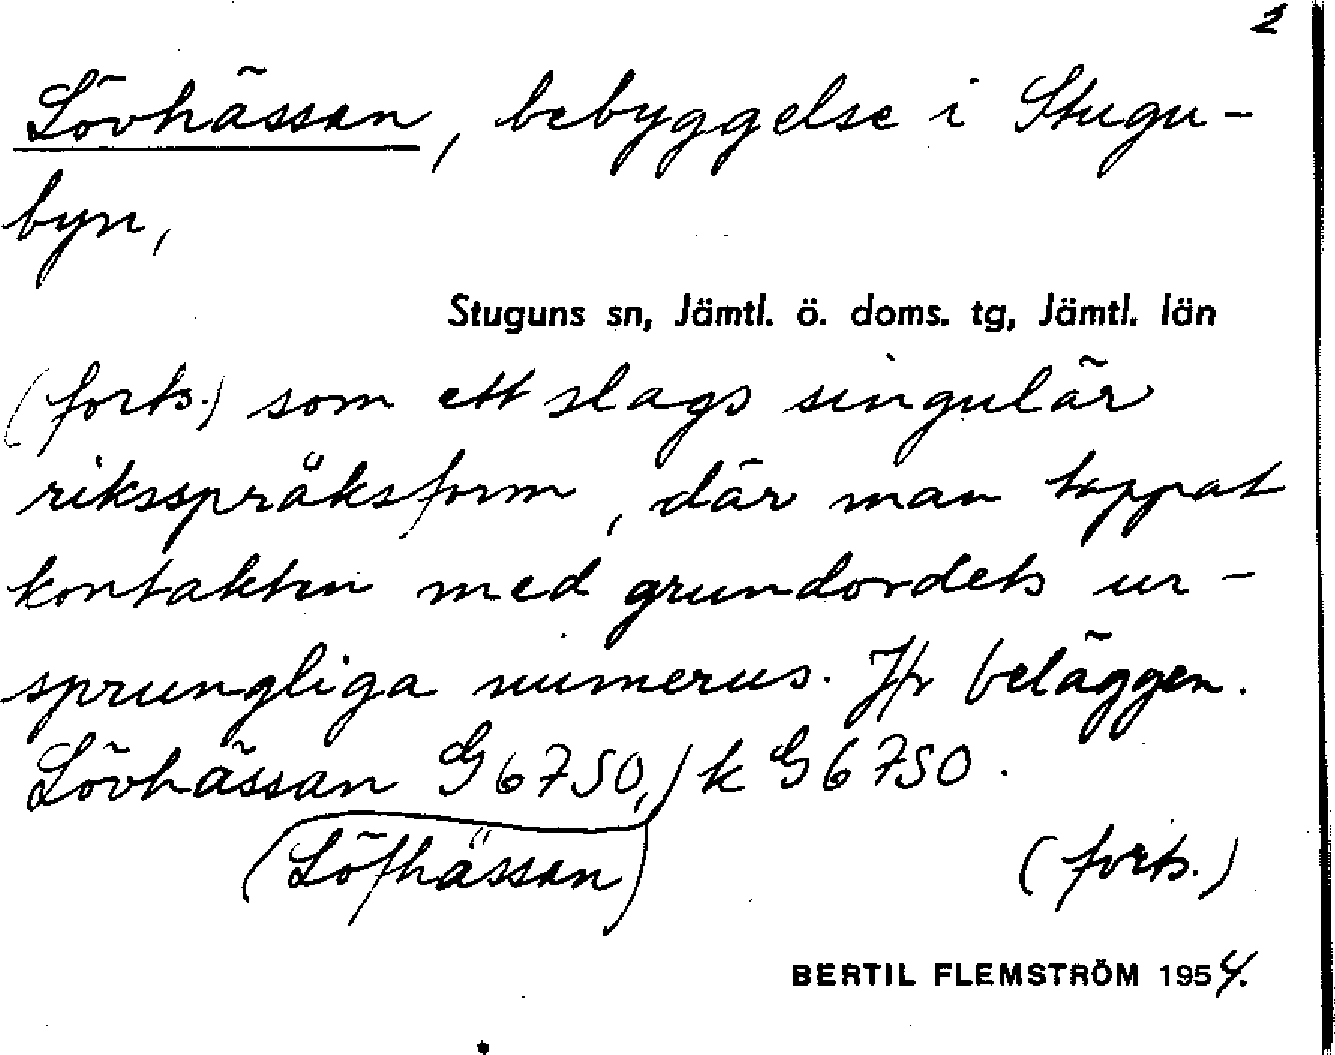 2
Lövhässen, bebyggelse i Stugu-
byn,
Stuguns sn, Jämtl. ö. doms. tg, Jämtl. län
(forts.) som ett slags singulär
riksspråksform, där man tappat
kontakten med grundordets ur-
sprungliga numerus. Jfr beläggen.
Lövhässan G6750, jk G6750.
(Löfhässen)
(forts.)
BERTIL FLEMSTRÖM 1954.